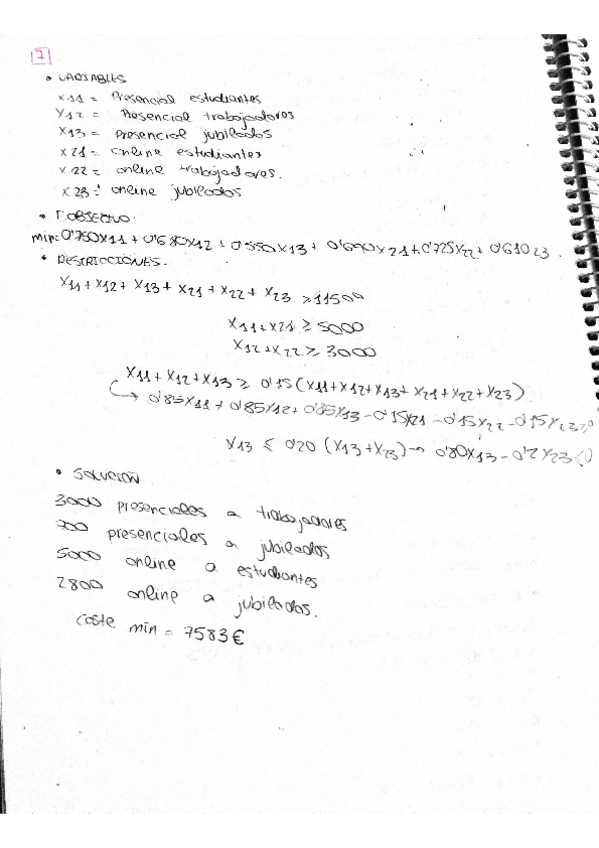 1
• VARIABLES
X11 = Presencial estudiantes
X12 = Presencial trabajadores
X13 = Presencial jubilados
X21 = Online estudiantes
X22 = online trabajadores.
X23 = online jubilados
• F. OBJETIVO
min = 0'750X11 + 0'680X12 + 0'550X13 + 0'690X21 + 0'725X22 + 0'61023.
• RESTRICCIONES.
X11 + X12 + X13 + X21 + X22 + X23 ≥ 11500
X11 + X21 ≥ 5000
X12 + X22 ≥ 3000
X11 + X12 + X13 ≥ 0'15 (X11 + X12 + X13 + X21 + X22 + X23)
→ 0'85X11 + 0'85X12 + 0'85X13 - 0'15X21 - 0'15X22 - 0'15X23 ≥ 0
X13 ≤ 0'20 (X13 + X23) → 0'80X13 - 0'2X23 ≤ 0
• SOLUCIÓN.
3000 presenciales a trabajadores
700 presenciales a jubilados
5000 online a estudiantes
2800 online a jubilados.
Coste min = 7583€